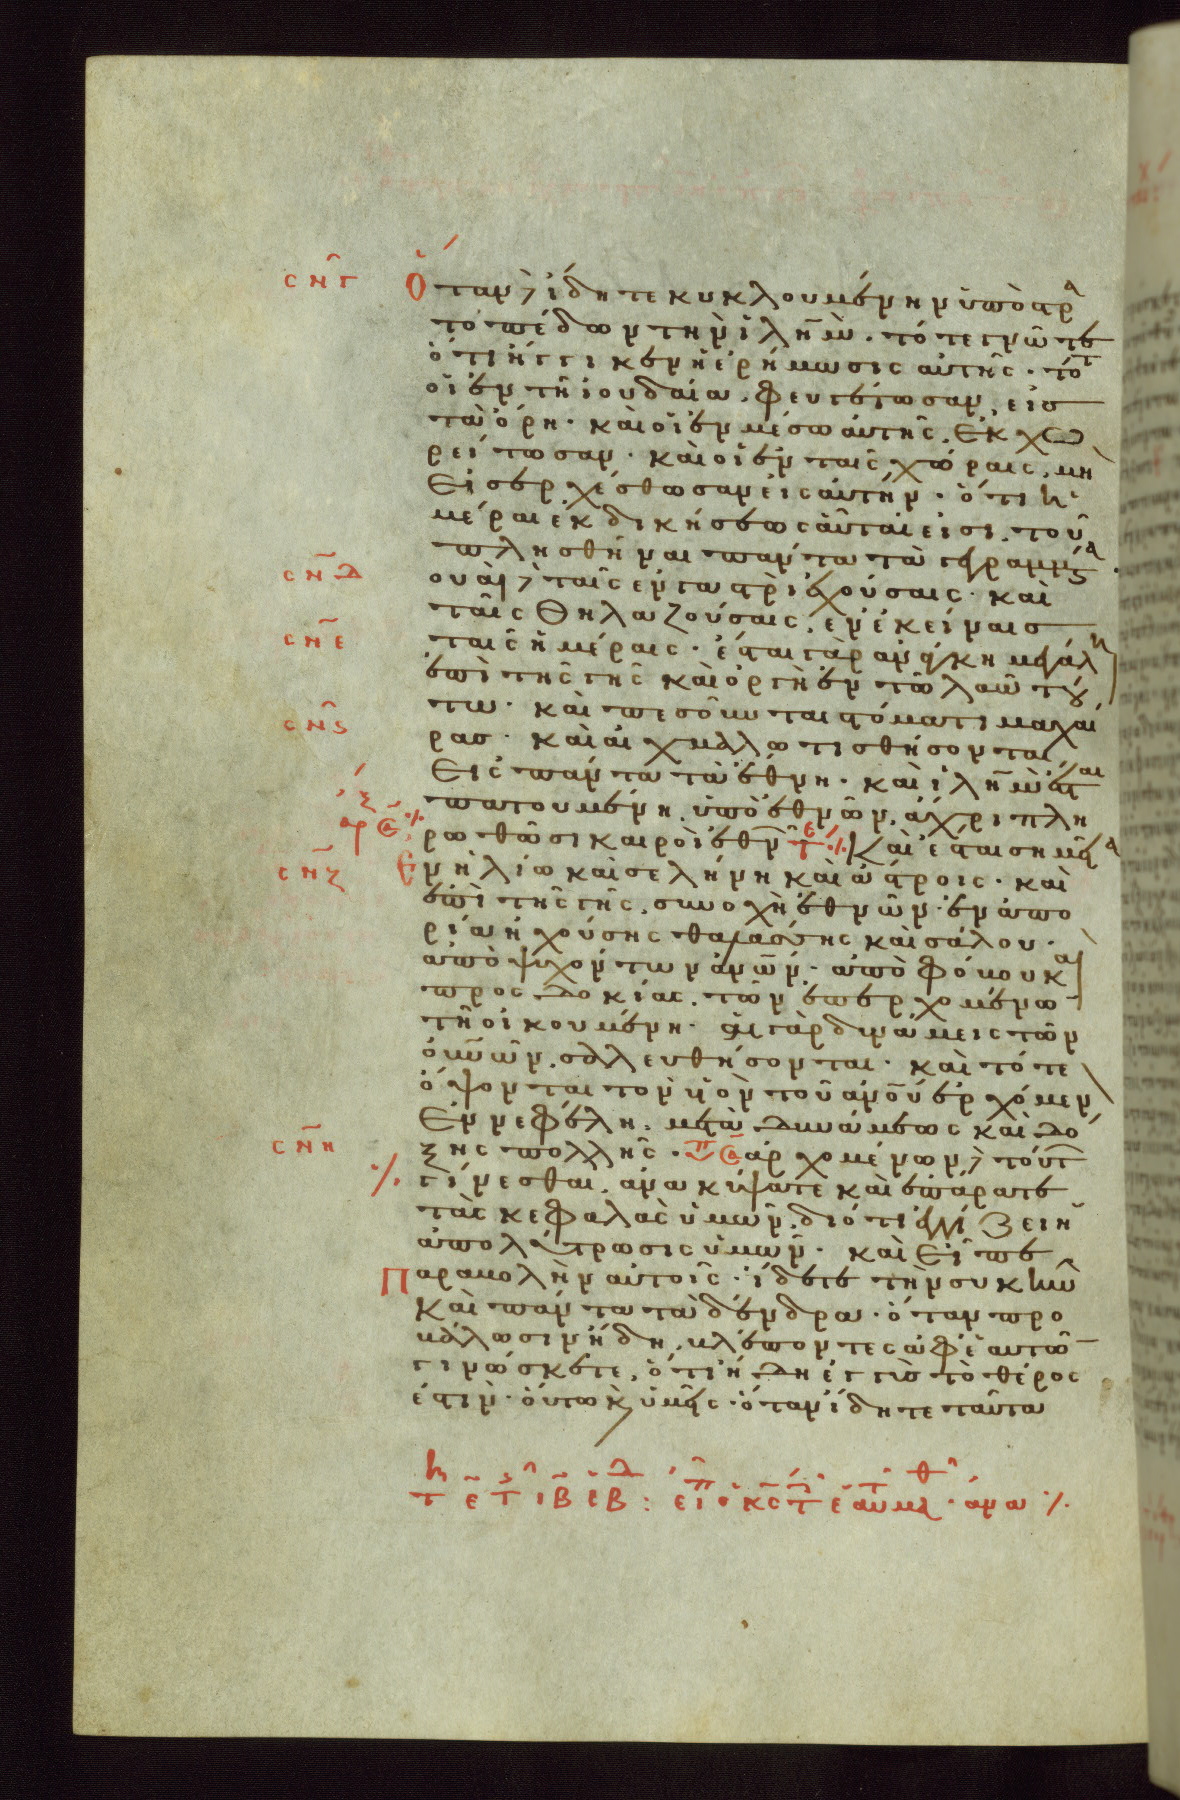 σνγ Ὅταν δὲ ἴδητε κυκλουμένην ὑπὸ στρα
τοπέδων τὴν ἰλημ̅. τότε γνῶτε
ὅτι ἤγγικεν ἡ ἐρήμωσις αὐτῆς. τότ
οἱ ἐν τῆ ἰουδαία, φευγέτωσαν εἰσ
τὰ ὄρη. καὶ οἱ ἐν μέσω αὐτῆς, ἐκχω
ρείτωσαν. καὶ οἱ ἐν ταῖς χώραις, μὴ
εἰσερχέσθωσαν εἰς αὐτήν. ὅτι ἡ
μέραι ἐκδικήσεως αὗταί εἰσι. τοῦ
πλησθῆναι πάντα τὰ γεγραμμένα.
σνδ οὐαὶ δὲ ταῖς ἐν γαστρὶ ἐχούσαις. καὶ
ταῖς θηλαζούσαις, ἐν ἐκείναισ
σνε ταῖς ἡμέραις. ἔσται γὰρ ἀνάγκη μεγάλη
ἐπὶ τῆς γῆς καὶ ὀργὴ ἐν τῶ λαῶ τού
σνς τω. καὶ πεσοῦνται στόματι μαχαί
ρασ. καὶ αἰχμαλωτισθήσονται
εἰς πάντα τὰ ἔθνη. καὶ ἰλημ̅ ἔσται
πατουμένη ὑπὸ ἐθνῶν, ἄχρι πλη
ρωθῶσι καιροὶ ἐθν Καὶ ἔσται σημεῖα
σνζ Ἐν ἡλίω καὶ σελήνη καὶ ἄστροις. καὶ
ἐπὶ τῆς γῆς, συνοχὴ ἐθνῶν. ἐν ἀπο
ρία ἠχούσης θαλάσσης καὶ σάλου.
ἀποψυχόντων ἀνων̅. ἀπὸ φόβου καὶ
προσδοκίας, τῶν ἐπερχομένω
τῆ οἰκουμένη. αἱ γὰρ δυνάμεις τῶν
οὐνων̅, σαλευθήσονται. καὶ τότε
ὄψονται τὸν υἱὸν τοῦ ανου̅ ἐρχόμεν
ἐν νεφέλη. μετὰ δυνάμεως καὶ δό
σνη ξης πολλῆς. ἀρχομένων δὲ τούτ
γίνεσθαι, ἀνακύψατε καὶ ἐπάρατε
τὰς κεφαλὰς ὑμῶν. διότι ἐγγίζει ἡ
ἀπολύτρωσις ὑμῶν. καὶ εἶπε
Παραβολὴν αὐτοῖς. ἴδετε τὴν συκῆν
καὶ πάντα τὰ δένδρα. ὅταν προ
βάλωσιν ἤδη, βλέποντες ἀφ' ἑαυτῶ
γινώσκετε, ὅτι ἤδη ἐγγὺς τὸ θέρος
ἐστίν. οὕτω κ ὑμεῖς. ὅταν ἴδητε ταῦτα